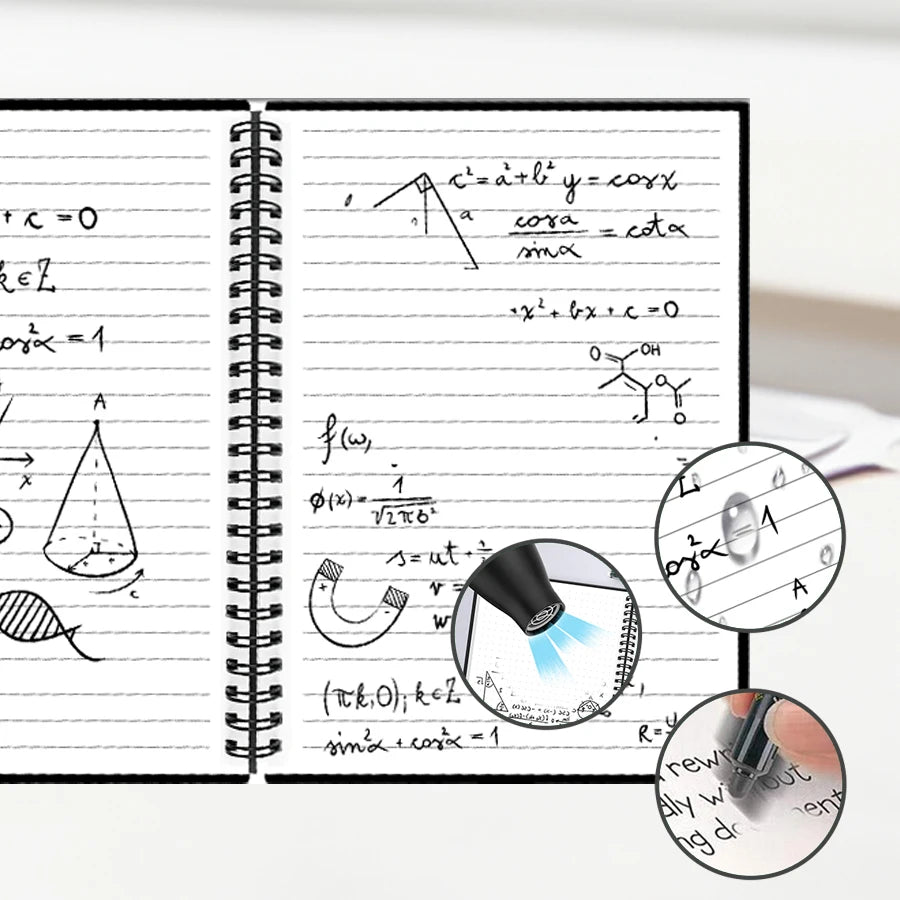 + c = 0
k ∈ Z
cos²α = 1
A
x
c
c² = a² + b² y = cosx
a
cosα / sinα = cotα
x² + bx + c = 0
O OH
O
O
f(ω,
φ(x) = 1 / √2πб²
s = ut +
v =
w
(πk,0); k ∈ Z
sin²α + cos²α = 1
R =
cos²α = 1
A
rewr out
dly w
ng d ent